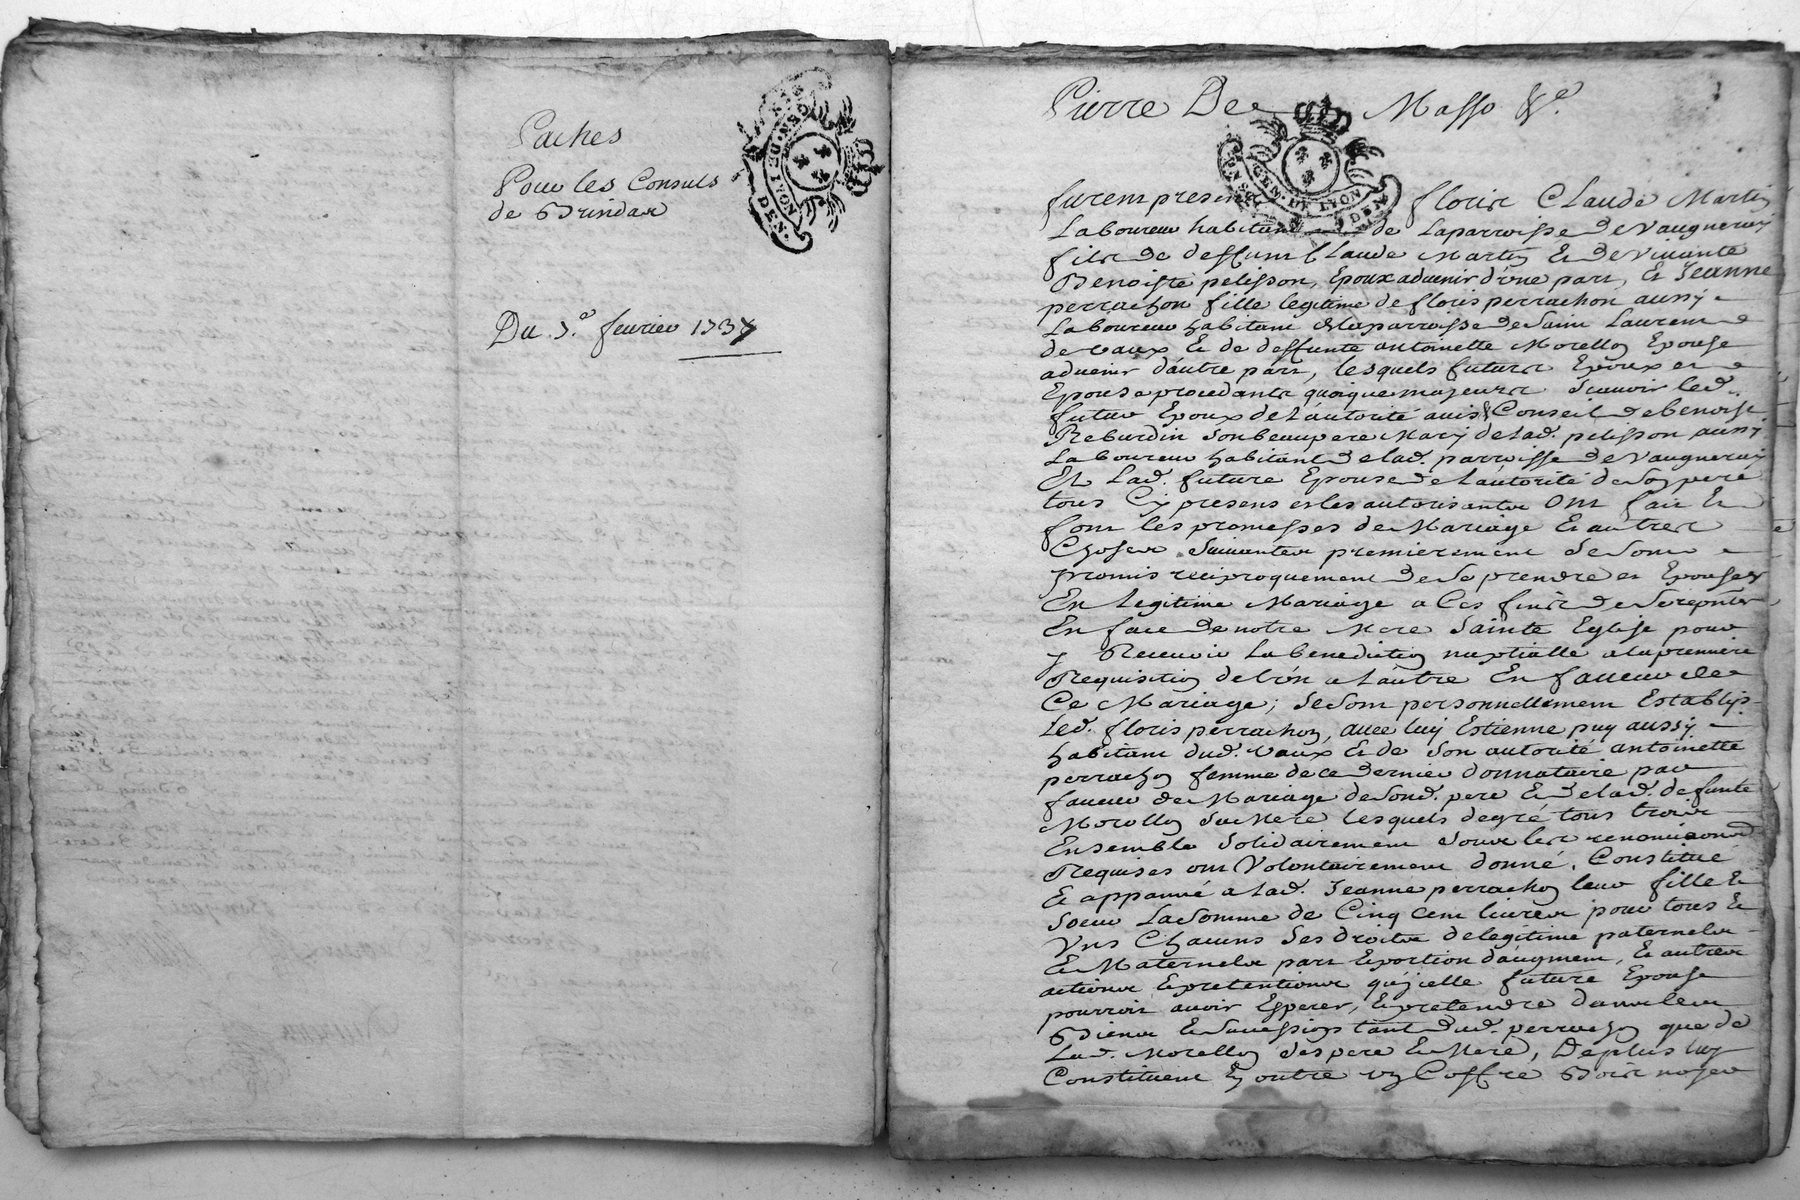 Paches
Pour les Consuls
de Brindax
Du 3.e feurier 1737
GEN. DE LYON
DEN.
Pierre De Masso &c.
GEN. DE LYON
DEN
furem presen floris Claude Martin
Laboureur habitant de Laparroisse de Vaugneray
fils de deffunt Claude Martin Et de viuante
Benoiste pelisson, Epoux aduenir d'vne part, Et Jeanne
perrachon fille legitime de floris perrachon aussy
Laboureur habitant de laparroisse de Saint Laurent
de vaux Et de deffunte antoinette Morellon Epouse
aduenir d'autre part, lesquels futurs Epoux et
Epouse procedants quoique majeurs Scauoir led.
futur Epoux de L'autorité auis & Conseil de benoist
Reburdin son beaupere Mary de lad. pelisson aussy
Laboureur habitant de lad. parroisse de Vaugneray
Et Lad. future Epouse de L'autorité de son pere
tous Cy presens et les autorisants Ont fait Et
font les promesses de Mariage Et autres
Choses Suiuantes premierement se sont
promis reciproquement de se prendre et Epouser
En Legitime Mariage a Ces fins de se repnter
En face de notre Mere Sainte Eglise pour
y Receuoir La benediction nuptialle a la premiere
Requisition de l'vn a L'autre En faueur de
Ce Mariage; se sont personnellement Establis
Led. floris perrachon, auec luy Estienne puy aussy
habitant dud. vaux Et de son autorité antoinette
perrachon femme de ce dernier donnataire par
faueur de Mariage de sond. pere Et de lad. defunte
Morellon sa Mere lesquels de gré tous trois
Ensemble solidairement sous les renonciaons
Requises ont Volontairement donné, Constitué
Et appanné a Lad. Jeanne perrachon leur fille Et
soeur La somme de Cinq cent liures pour tous Et
Vns Chacuns Ses droits de legitime paternels
Et Maternels part Et portion d'augment, Et autres
actions Et pretentions qu'icelle future Epouse
pourroit auoir Esperer, Et pretendre dans les
Biens Et Succession tant dud. perrachon que de
Lad. Morellon Ses pere Et Mere, De plus luy
Constituent En outre vn Coffre Bois noyer